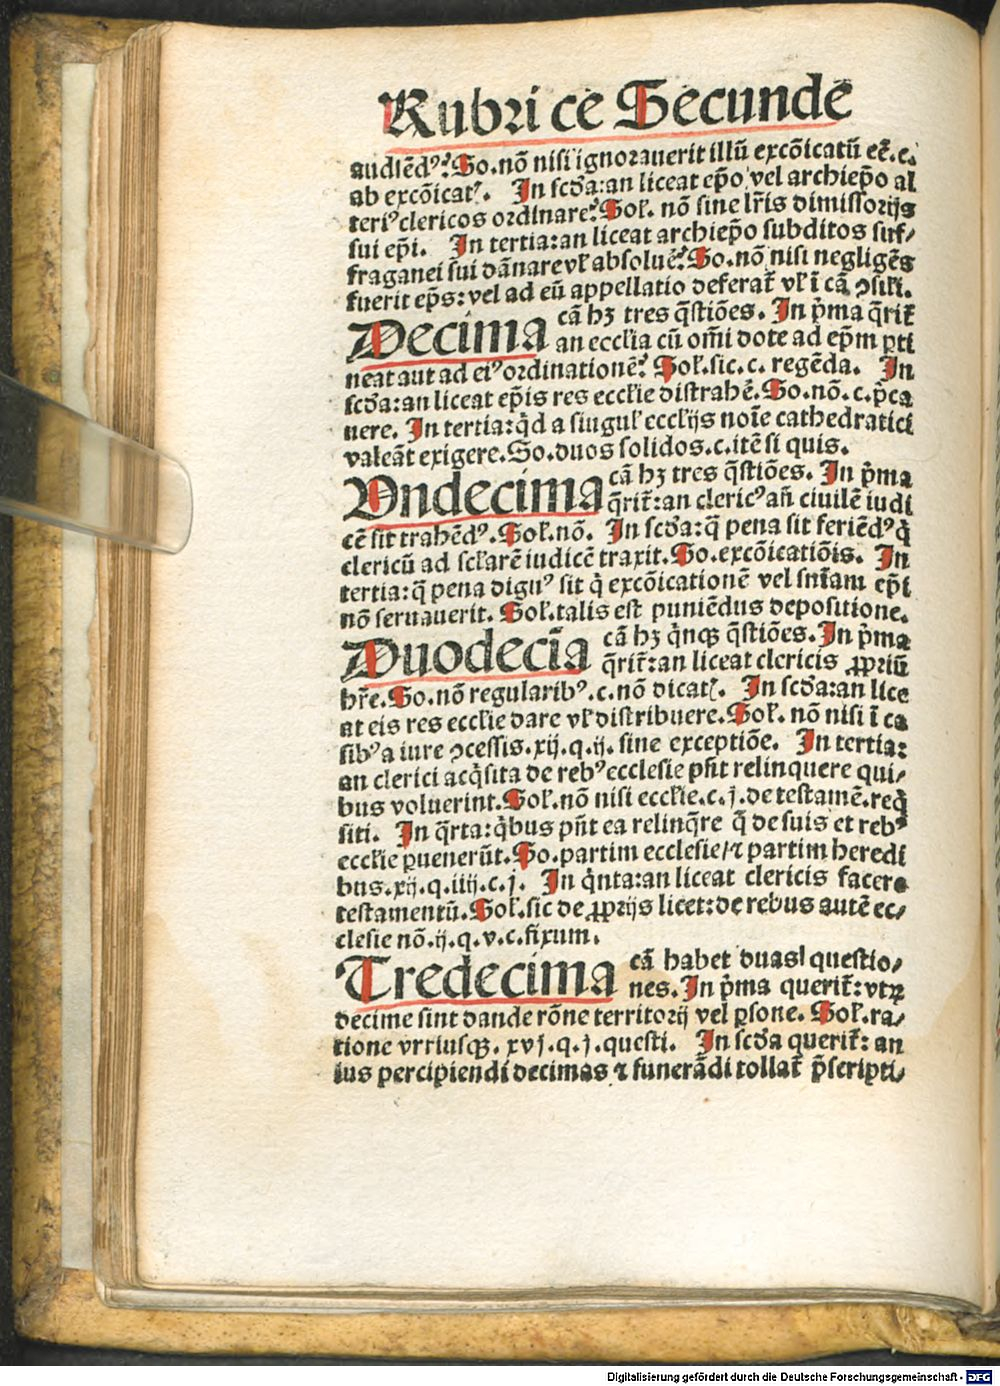 Rubrice Secunde
audiēdꝰ? So. nō nisi ignorauerit illū excōicatū eē. c.
ab excōicat?. In scđa: an liceat ep̄o vel archiep̄o al
teriꝰ clericos ordinare? Sol. nō sine lr̄is dimissorijs
sui ep̄i. In tertia: an liceat archiep̄o subditos suf/
fraganei sui dānare vł absoluē? So. nō nisi negligēs
fuerit ep̄s: vel ad eū appellatio deferat̄ vł ī cā ꝯsili.
Decima cā hꝫ tres q̄stiōes. In p̄ma q̄rit̄
an ecclia cū om̄i dote ad ep̄m ꝑti
neat aut ad eiꝰ ordinationē? Sol. sic. c. regēda. In
scđa: an liceat ep̄is res ecclie distrahē. So. nō. c. p̄ca
uere. In tertia: q̄d a singul' ecclijs noīe cathedratici
valeāt exigere. So. duos solidos. c. itē si quis.
Undecima cā hꝫ tres q̄stiōes. In p̄ma
q̄rit̄: an clericꝰ an̄ ciuilē iudi
cē sit trahēdꝰ. Sol. nō. In scđa: q̄ pena sit feriēdꝰ q̄
clericū ad sclarē iudicē traxit. So. excōicatiōis. In
tertia: q̄ pena dignꝰ sit q̄ excōicationē vel sn̄iam ep̄i
nō seruauerit. Sol. talis est puniēdus depositione.
Duodecīa cā hꝫ q̄nqꝫ q̄stiōes. In p̄ma
q̄rit̄: an liceat clericis ꝓpriū
hr̄e. So. nō regularibꝰ. c. nō dicat?. In scđa: an lice
at eis res ecclie dare vł distribuere. Sol. nō nisi ī ca
sibꝰ a iure ꝯcessis. xij. q. ij. sine exceptiōe. In tertia:
an clerici acq̄sita de rebꝰ ecclesie p̄nt relinquere qui/
bus voluerint. Sol. nō nisi ecclie. c. j. de testamē. req̄
siti. In q̄rta: q̄bus pn̄t ea relinq̄re q̄ de suis et rebꝰ
ecclie ꝑuenerūt. So. partim ecclesie/ ⁊ partim heredi
bus. xij. q. iiij. c. j. In q̄nta: an liceat clericis facere
testamentū. Sol. sic de ꝓprijs licet: de rebus autē ec/
clesie nō. ij. q. v. c. fixum.
Tredecima cā habet duas questio/
nes. In p̄ma querit̄: vtꝝ
decime sint dande rōne territorij vel ꝑsone. Sol. ra/
tione vtriusqꝫ. xvj. q. j. questi. In scđa querit̄: an
ius percipiendi decimas ⁊ funerādi tollat̄ p̄scripti/
Digitalisierung gefördert durch die Deutsche Forschungsgemeinschaft - DFG